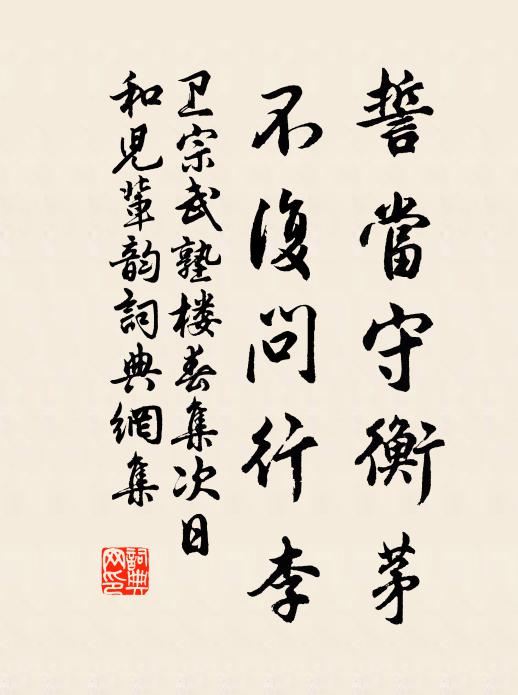 誓當守衡茅
不復問行李
卫宗武塾楼春集次日
和児輩韵詞典網集
詞典
网印